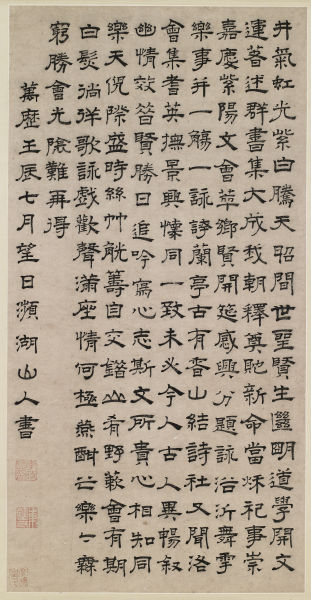 井氣虹光紫白騰天昭間世聖賢生豔明道學開文
運蓍述群書集大成我朝釋奠貤新命當烁祀事崇
嘉慶紫陽文會萃鄉賢開筵感興分題詠浴沂舞雩
樂事并一觴一詠詩蘭亭古有香山結詩社又聞洛
會集耆英撫景興懷同一致未必今人古人異暢敘
幽情效昝賢勝日追吟寫心志斯文所貴心相知同
樂天倪際盛時絲竹觥籌自交錯山肴野蔌會有期
白髮徜徉歌詠戲歡聲滿座情何極燕酣之樂樂無
窮勝會光陰難再得
萬歷壬辰七月望日瀕湖山人書